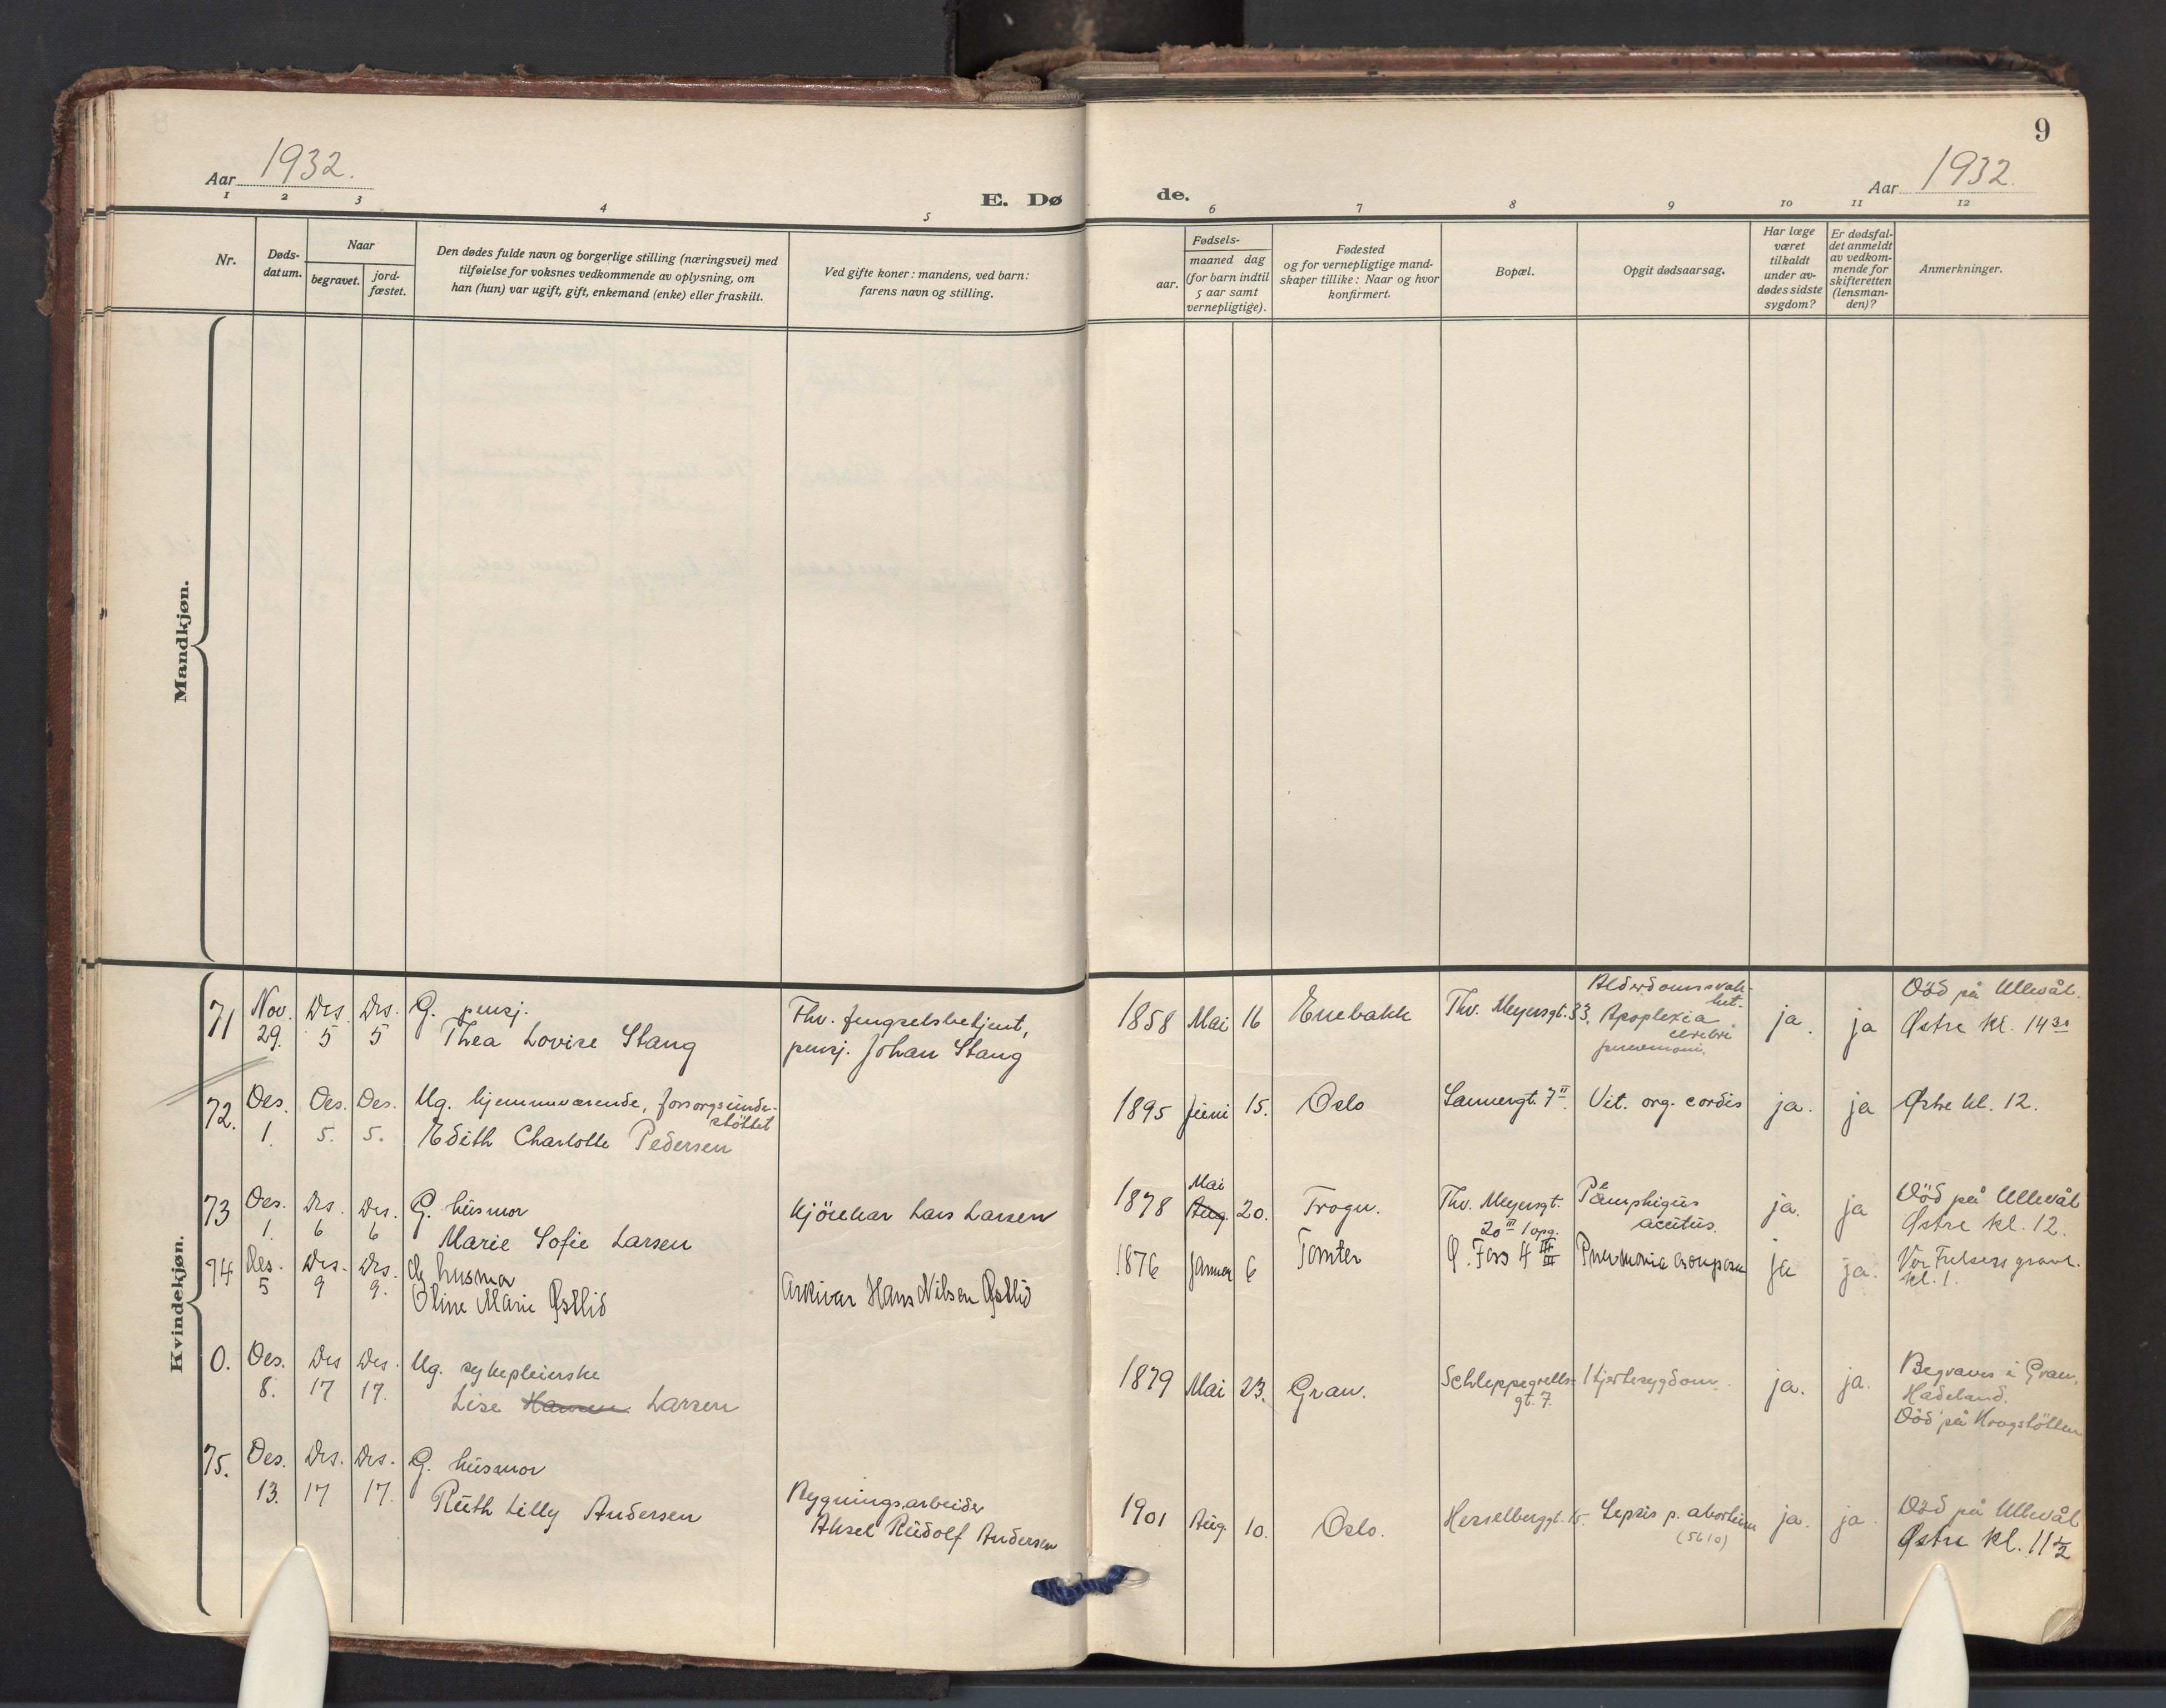 9
Aar 1932.
E. Dø
de.
Aar 1932.
1 2 3 4 5 6 7 8 9 10 11 12
Nr.
Døds-
datum.
Naar
begravet.
jord-
fæstet.
Den dødes fulde navn og borgerlige stilling (næringsvei) med
tilføielse for voksnes vedkommende av oplysning, om
han (hun) var ugift, gift, enkemand (enke) eller fraskilt.
Ved gifte koner: mandens, ved barn:
farens navn og stilling.
Fødsels-
aar.
maaned dag
(for barn indtil
5 aar samt
vernepligtige).
Fødested
og for vernepligtige mand-
skaper tillike: Naar og hvor
konfirmert.
Bopæl.
Opgit dødsaarsag.
Har læge
været
tilkaldt
under av-
dødes sidste
sygdom?
Er dødsfal-
det anmeldt
av vedkom-
mende for
skifteretten
(lensman-
den)?
Anmerkninger.
Mandkjøn.
Kvindekjøn.
71
Nov.
29.
Des.
5
Des.
5
G. pensj.
Thea Lovise Stang
Fhv. fengselsbetjent,
pensj. Johan Stang
1858 Mai 16
Enebakk
Thv. Meyersgt. 33.
Alderdomssvak-
het.
Apoplexia
cerebri
pneumoni.
ja. ja
Död på Ullevål.
Østre kl. 14 30
72.
Des.
1.
Des.
5.
Des.
5.
Ug. hjemmeværende, forsorgsunder-
støttet
Edith Charlotte Pedersen
1895 Juni 15.
Oslo
Sannergt. 7 II.
Vit. org. cordis
ja. ja
Østre kl. 12.
73
Des.
1.
Des.
6
Des.
6
G. husmor
Marie Sofie Larsen
Kjörekar Lars Larsen
1878
Mai
Aug. 20.
Trogn.
Thv. Meyersgt.
20 III 1 opg.
Pemphigus
acutus.
ja. ja
Död på Ullevål
Østre kl. 12.
74
Des.
5
Des.
9
Des.
9.
G husmor
Oline Marie Østlid
Arkivar Hans Nilsen Østlid
1876 Januar 6
Tomter
Ø. Foss 4 III
Pneumonia crouposa
ja ja.
Vor Frelsers gravl.
kl. 1.
0.
Des.
8.
Des
17
Des.
17.
Ug. sykepleierske
Lise Hansen Larsen
1879 Mai 23.
Gran.
Schleppegrells-
gt. 7.
Hjertesygdom.
ja. ja.
Begraves i Gran,
Hadeland.
Död på Krogstötten
75.
Des.
13.
Des.
17
Des.
17.
G. husmor
Ruth Lilly Andersen
Bygningsarbeider
Aksel Rudolf Andersen
1901 Aug. 10.
Oslo.
Hesselberggt. 15.
Sepsis p. abortum
(5610)
ja. ja.
Död på Ullevål
Østre kl. 11 1/2